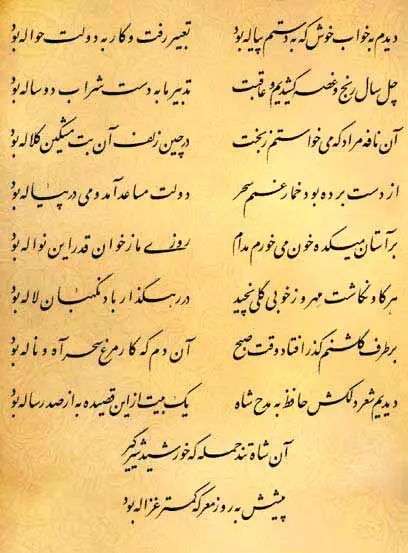 دیدم به خواب خوش که به دستم پیاله بود تعبیر رفت و کار به دولت حواله بود
چل سال رنج و غصه کشیدیم و عاقبت تدبیر ما به دست شراب دو ساله بود
آن نافه مراد که می خواستم ز بخت در چین زلف آن بت مشکین کلاله بود
از دست برده بود خمار غمم سحر دولت مساعد آمد و می در پیاله بود
بر آستان میکده خون می خورم مدام روزی ما ز خوان قدر این نواله بود
هر کاو نکاشت مهر و ز خوبی گلی نچید در رهگذار باد نگهبان لاله بود
بر طرف گلشنم گذر افتاد وقت صبح آن دم که کار مرغ سحر آه و ناله بود
دیدیم شعر دلکش حافظ به مدح شاه یک بیت از این قصیده به از صد رساله بود
آن شاه تند حمله که خورشید شیرگیر
پیشش به روز معرکه کمتر غزاله بود